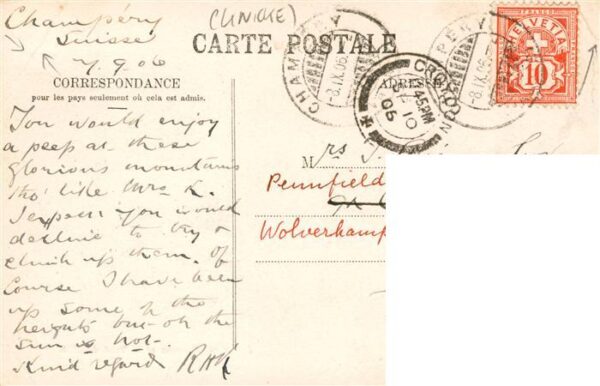 Champéry
Suisse
7.9.06
(UNIQUE)
CARTE POSTALE
CORRESPONDANCE
pour les pays seulement où cela est admis.
ADRESSE
You would enjoy
a peep at these
glorious mountains
tho' like Mrs K.
I expect you would
decline to try &
climb up them. Of
course I have been
up some of the
heights but oh the
sun is hot.
Kind regards
Mrs
Pennfield
Wolverhamp
CHAMPÉRY
-8.IX.06
CHAMPÉRY
-8.IX.06
CROYDON
SP 10
06
HELVETIA
10
FRANCO